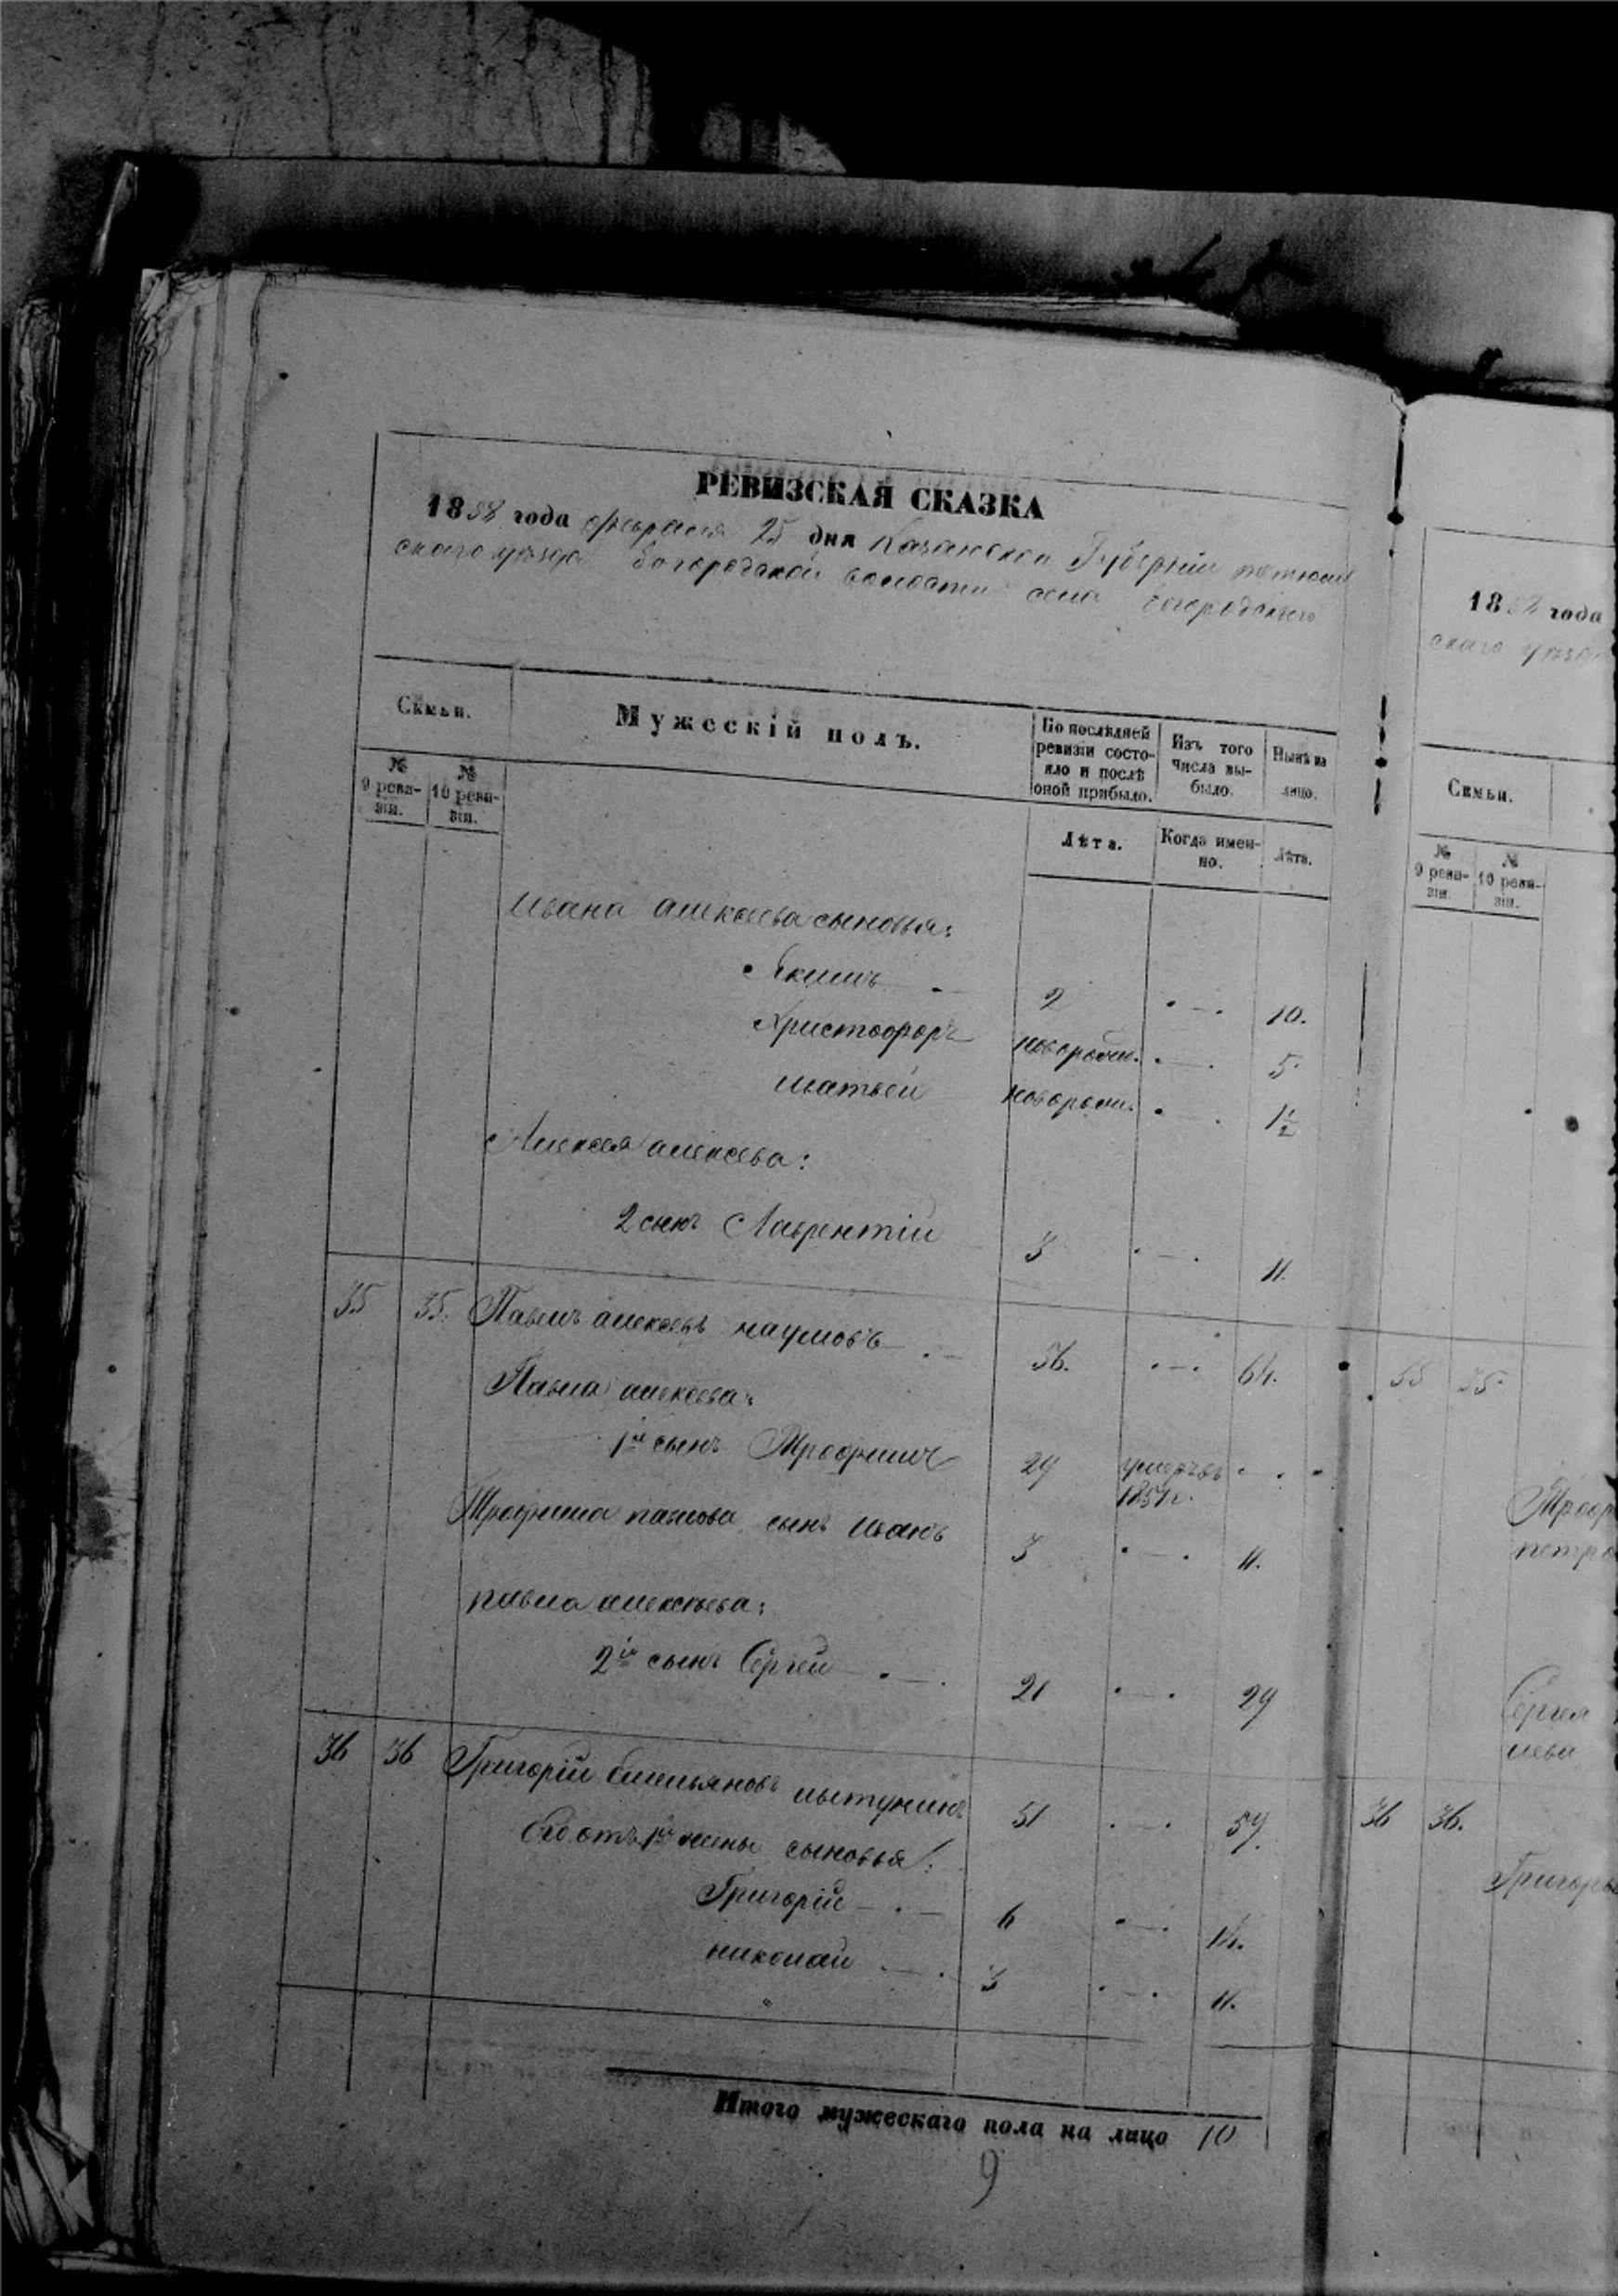 РЕВИЗСКАЯ СКАЗКА
1858 года февраля 25 дня Казанской Губерніи тетюш
скаго уѣзда Богородской волости села Богородскаго
Семьи.
Мужескій полъ.
По послѣдней ревизіи состояло и послѣ оной прибыло.
Изъ того числа выбыло.
Нынѣ на лицо.
№ 9 ревизіи.
№ 10 ревизіи.
Лѣта.
Когда именно.
Лѣта.
Ивана алексеева сыновья:
Якимъ 2 10.
Христофоръ новорожд. 5
матвей новорожд. 1½
Алексея алексева:
2 сынъ Лаврентій 3 11.
35 35. Павелъ алексевъ наумовъ 56. 64.
Павла алексева:
1й сынъ Трофимъ 29 умеръ въ 1851 г.
Трофима павлова сынъ иванъ 3 11.
павла алексѣева:
2й сынъ Сергей 21 29
36 36 Григорій Емельяновъ 51 59.
Его отъ 1й жены сыновья:
Григорій 6 14.
николай 3 11.
Итого мужескаго пола на лицо 10
9
1858 года
скаго уѣзда
Семьи.
№ 9 ревизіи.
№ 10 ревизіи.
35 35.
Троф
петро
Сергея
36 36.
Григорь